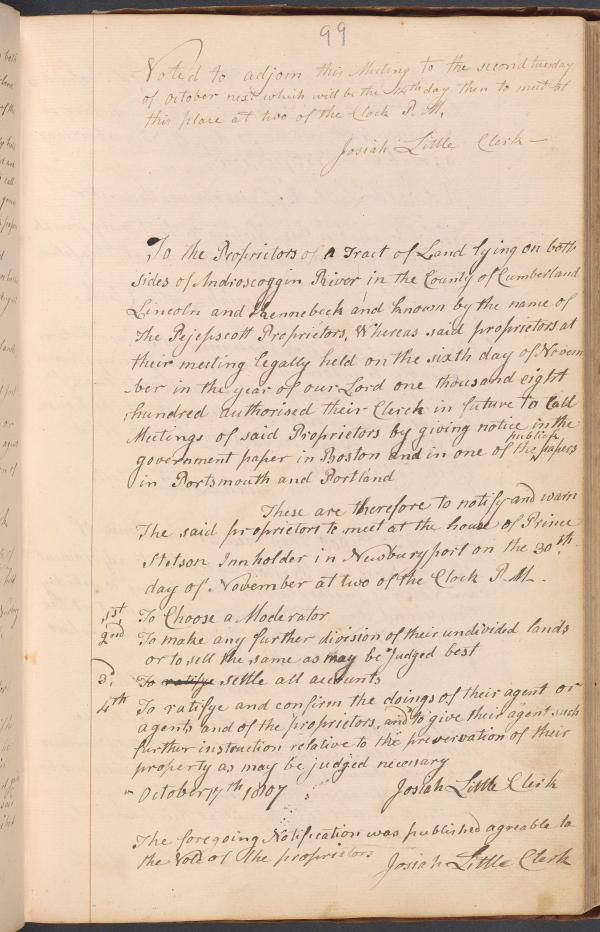 99
Voted to adjorn this Meeting to the second tuesday
of October next which will be the day then to meet at
this place at two of the Clock P. M.
Josiah Little Clerk —
To the Proprietors of a Tract of Land lying on both
sides of Androscoggin River in the County of Cumberland
Lincoln and Kennebeck and known by the name of
The Pejepscott Proprietors, Whereas said proprietors at
their meeting legally held on the sixth day of Novem
ber in the year of our Lord one thousand eight
hundred authorised their Clerck in future to Call
Meetings of said Proprietors by giving notice in the
publick
government paper in Boston and in one of the papers
in Portsmouth and Portland
These are therefore to notify and warn
The said proprietors to meet at the house of Prince
Stetson Innholder in Newburyport on the 30th.
day of November at two of the Clock P. M.
1st To Choose a Moderator
2nd To make any further division of their undivided lands
or to sell the same as may be Judged best
3d. To ratifye settle all accounts
4th To ratifye and confirm the doings of their agent or
agents and of the proprietors, and to give their agent such
further instruction relative to the preservation of their
property as may be judged necessary
October 17th 1807 Josiah Little Clerk
The foregoing Notification was published agreable to
the Vote of the proprietors Josiah Little Clerk